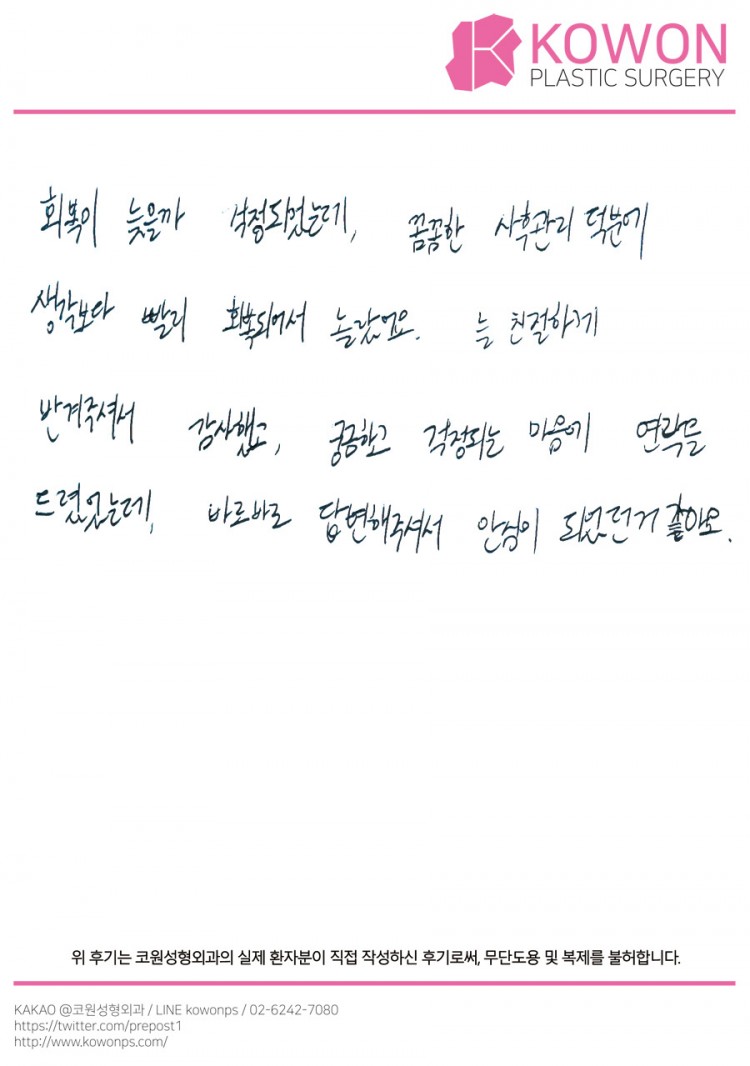 KOWON
PLASTIC SURGERY
회복이 늦을까 걱정되었는데, 꼼꼼한 사후관리 덕분에
생각보다 빨리 회복되어서 놀랐어요. 늘 친절하게
반겨주셔서 감사했고, 궁금하고 걱정되는 마음에 연락을
드렸었는데, 바로바로 답변해주셔서 안심이 되었던거 같아요.
위 후기는 코원성형외과의 실제 환자분이 직접 작성하신 후기로써, 무단도용 및 복제를 불허합니다.
KAKAO @코원성형외과 / LINE kowonps / 02-6242-7080
https://twitter.com/prepost1
http://www.kowonps.com/